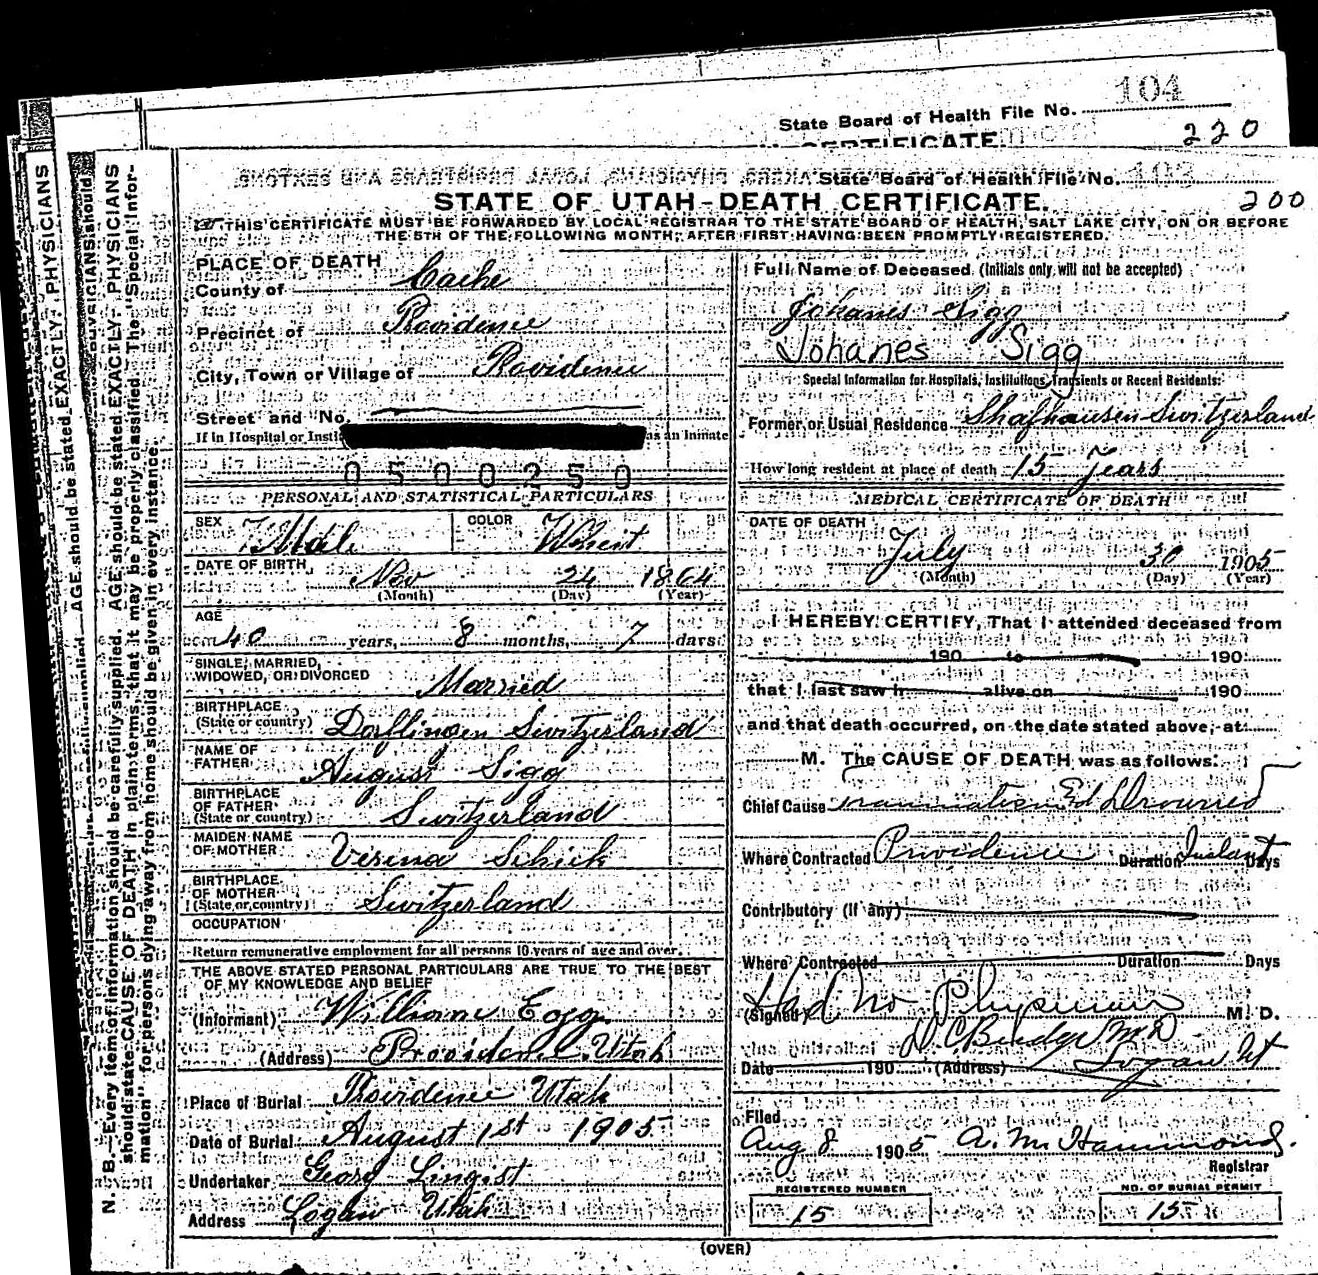 State Board of Health File No. 104
CERTIFICATE
220
State Board of Health File No. 103
STATE OF UTAH-DEATH CERTIFICATE.
200
THIS CERTIFICATE MUST BE FORWARDED BY LOCAL REGISTRAR TO THE STATE BOARD OF HEALTH, SALT LAKE CITY, ON OR BEFORE
THE 5TH OF THE FOLLOWING MONTH, AFTER FIRST HAVING BEEN PROMPTLY REGISTERED.
N. B.—Every item of information should be carefully supplied. AGE should be stated EXACTLY. PHYSICIANS
should state CAUSE OF DEATH in plain terms, that it may be properly classified. The "Special Infor-
mation" for persons dying away from home should be given in every instance.
AGE should be stated EXACTLY. PHYSICIANS
PLACE OF DEATH
County of Cache
Precinct of Providence
City, Town or Village of Providence
Street and No.
If in Hospital or Insti as an Inmate
0500250
PERSONAL AND STATISTICAL PARTICULARS
SEX Male COLOR Whent
DATE OF BIRTH Nov 24 1864
(Month) (Day) (Year)
AGE
40 years, 8 months, 7 days
SINGLE, MARRIED,
WIDOWED, OR DIVORCED Married
BIRTHPLACE
(State or country) Dorflingen Switzerland
NAME OF
FATHER August Sigg
BIRTHPLACE
OF FATHER
(State or country) Switzerland
MAIDEN NAME
OF MOTHER Verena Schick
BIRTHPLACE
OF MOTHER
(State or country) Switzerland
OCCUPATION
Return remunerative employment for all persons 10 years of age and over.
THE ABOVE STATED PERSONAL PARTICULARS ARE TRUE TO THE BEST
OF MY KNOWLEDGE AND BELIEF
(Informant) William Eggg
(Address) Providence Utah
Place of Burial Providence Utah
Date of Burial August 1st 1905
Undertaker Georg Lingist
Address Logan Utah
Full Name of Deceased (Initials only will not be accepted)
Johanes Sigg
Johanes Sigg
Special Information for Hospitals, Institutions, Transients or Recent Residents:
Former or Usual Residence Shafhausen Switzerland
How long resident at place of death 15 Years
MEDICAL CERTIFICATE OF DEATH
DATE OF DEATH
July 30 1905
(Month) (Day) (Year)
I HEREBY CERTIFY, That I attended deceased from
190 to 190
that I last saw h alive on 190
and that death occurred, on the date stated above, at
M. The CAUSE OF DEATH was as follows:
Chief Cause Drowned
Where Contracted Providence Duration Instant Days
Contributory (if any)
Where Contracted Duration Days
Had No Physician
(Signed) M. D.
D C Budge M D
Date 190 (Address) Logan Ut
Filed
Aug 8 1905 A. M. Hammond.
Registrar
REGISTERED NUMBER
15
NO. OF BURIAL PERMIT
15
(OVER)